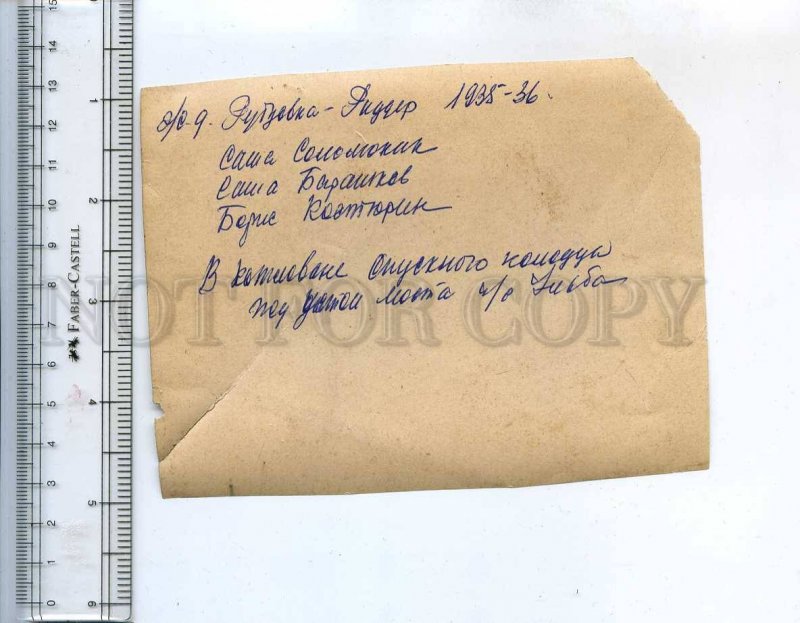 ж/д. Рубцовка - Риддер 1935-36.
Саша Соломокин
Саша Барашков
Борис Костюрин
В котловане опускного колодца
под устой моста ч/р Ульба
NOT FOR COPY
FABER-CASTELL